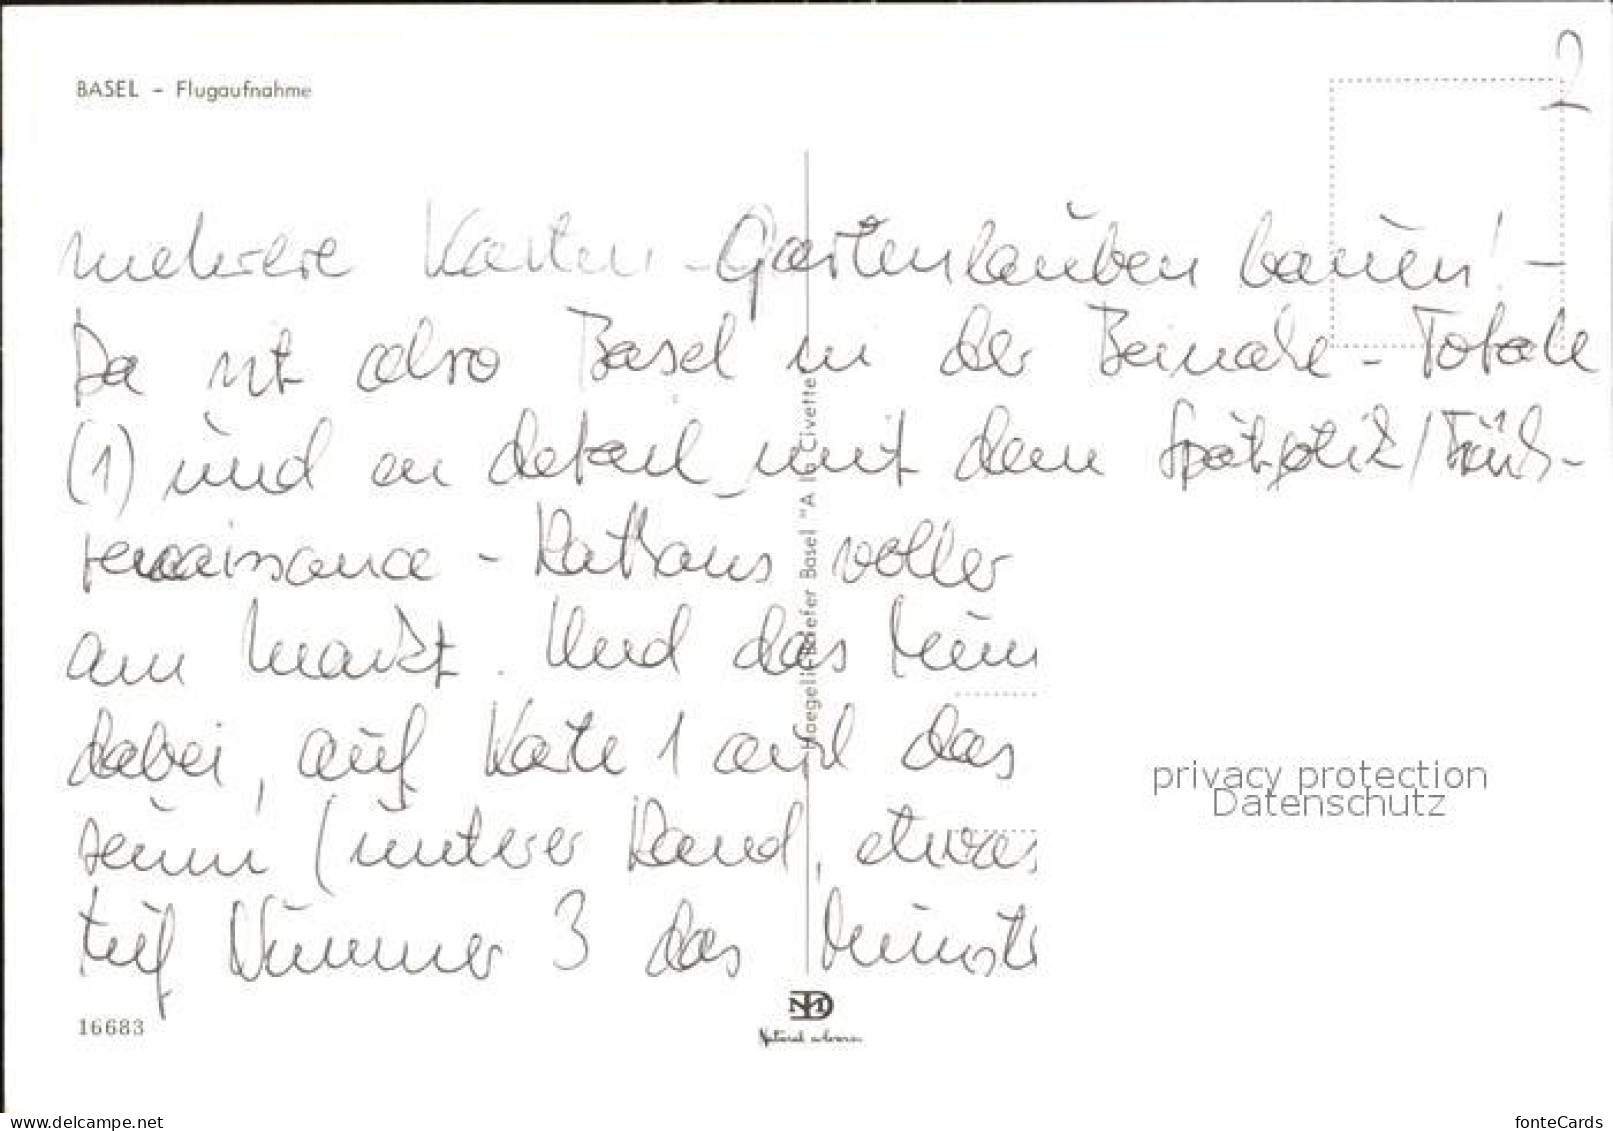 2
BASEL - Flugaufnahme
mehrere Karten - Gartenlauben bauen! -
Da ist also Basel in der Beinahe - Totale
(1) und en detail mit dem Spätgotik/Früh-
renaissance - Rathaus voller
am Markt. Und das Mün
dabei, auf Karte 1 und das
(unterer Rand, etwas
Nummer 3 das Münst
Haegelin-Baefer Basel "A la Civette"
privacy protection
Datenschutz
16683
www.delcampe.net
fonteCards